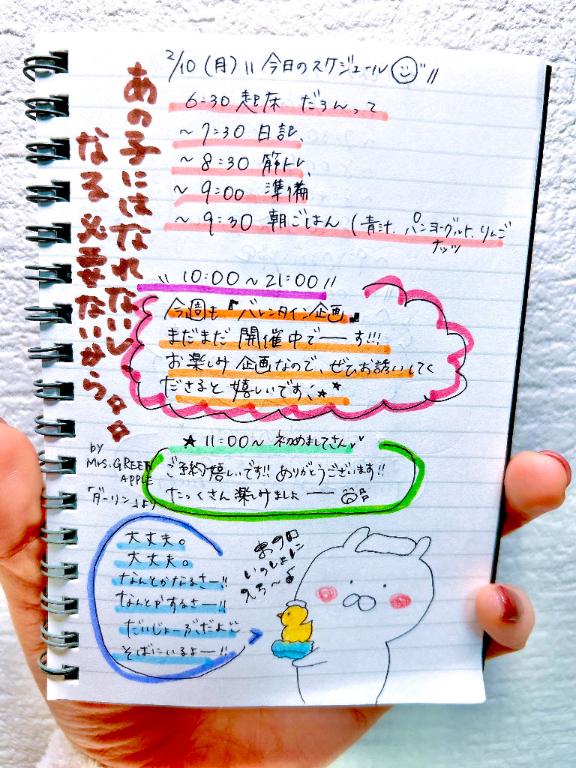 2/10(月) 11 今日のスケジュール
6:30 起床 だるんって
~7:30 日記、
~8:30 筋トレ
~9:00 準備
~9:30 朝ごはん (青汁、パンヨーグルト、りんご
ナッツ
あの子にはなれないし
なる必要ないから。
by
Mrs.GREEN
APPLE
「ダーリン」より
10:00~21:00
今週も『バレンタイン企画』
まだまだ開催中でーす!!!
お楽しみ企画なので、ぜひお誘いしてく
ださると嬉しいです
★11:00~ 初めましてさん
ご予約嬉しいです!! ありがとうございます!!
たっくさん楽しみましょー
大丈夫。
大丈夫。
なんとかなるさー!!
なんとかするさー!!
だいじょーぶだよ
そばにいるよー!!
いっしょに